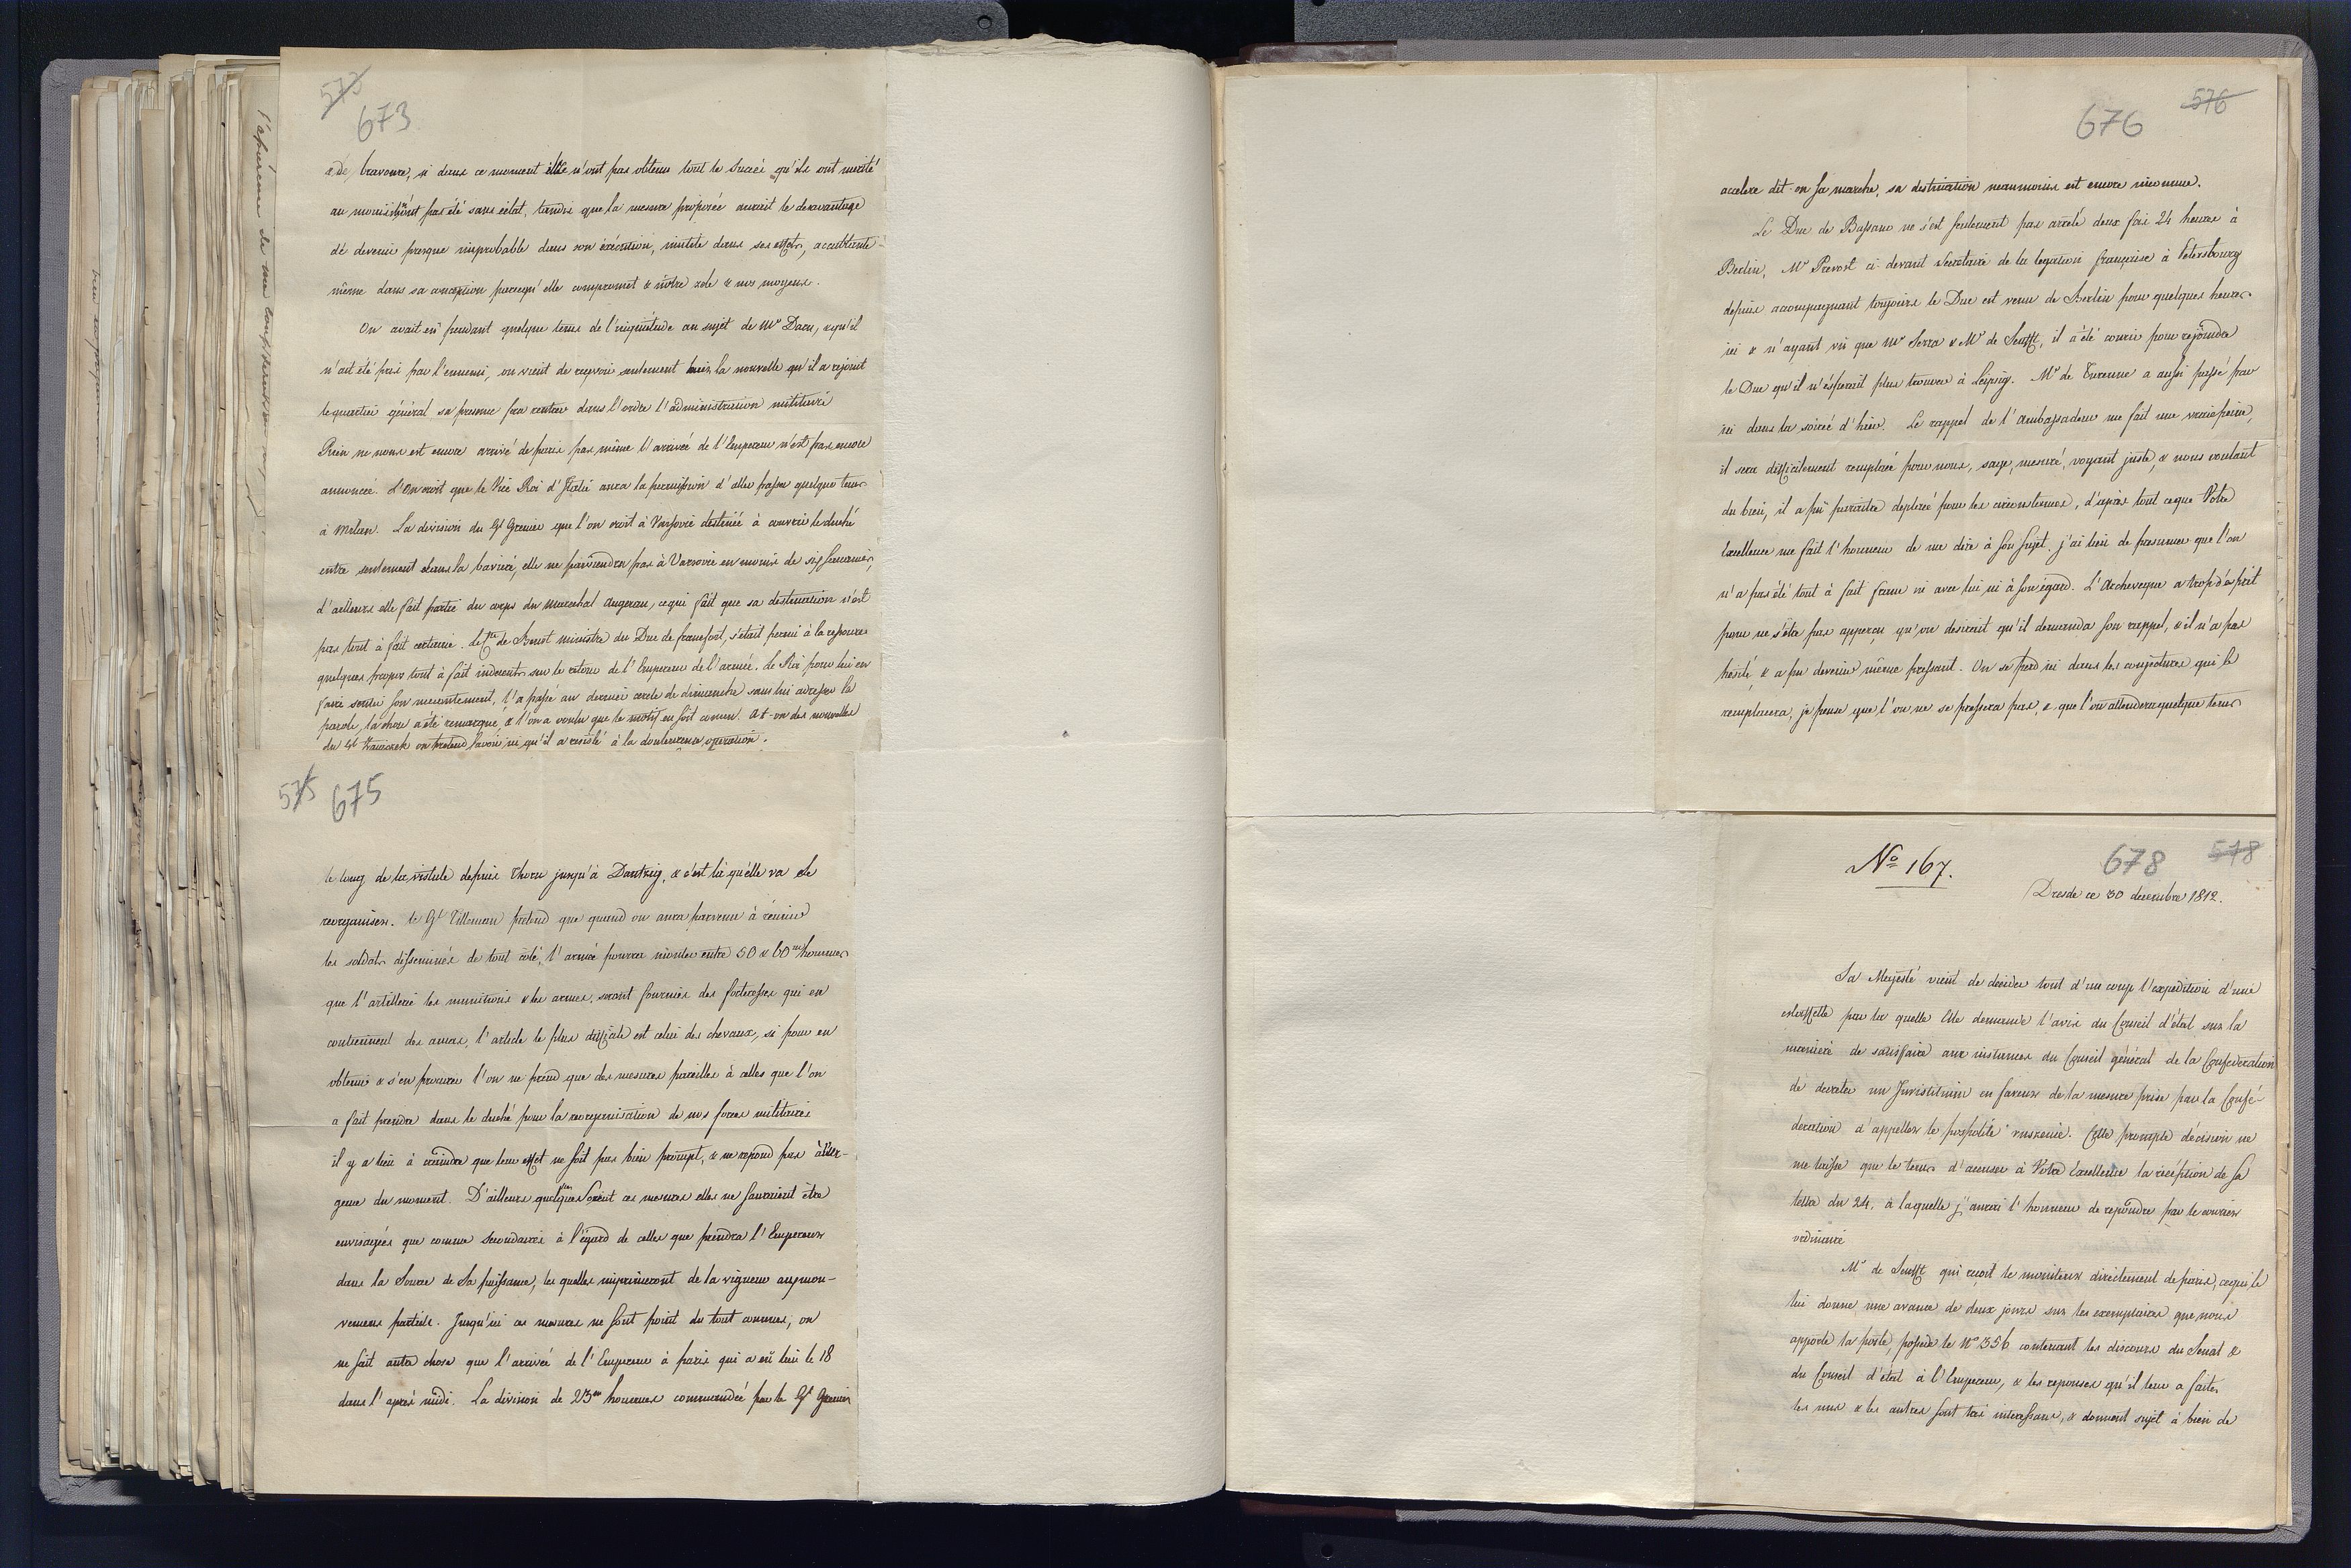 573
673
& de bravoure, si dans ce moment elle n'ont pas obtenu tout le succès qu'ils ont merité
au moins n'ont pas été sans éclat, tandis que la mesure proposée aurait le desavantage
de devenir presque improbable dans son éxécution, inutile dans ses effets, accablante
même dans sa conception parcequ'elle compromet & nôtre zele & nos moyens.
On avait eû pendant quelque tems de l'inquiétude au sujet de Mr Daru, & qu'il
n'ait été pris par l'ennemi, on vient de reçevoir seulement hier la nouvelle qu'il a rejoint
le quartier général sa presence fera rentrer dans l'ordre l'administration militaire
Rien ne nous est encore arrivé de paris pas même l'arrivée de l'Empereur n'est pas encore
annoncée. L'on croit que le Vice Roi d'Italie aura la permission d'aller passer quelque tems
à Milan. La division du Gl Grenier que l'on croit à Varsovie destinée à couvrir le duché
entre seulement dans la baviere, elle ne parviendra pas à Varsovie en moins de six semaines,
d'ailleurs elle fait partie du corps du Marechal Augerau, ce qui fait que sa destination n'est
pas tout à fait certaine. le Cte de Beust ministre du Duc de francfort, s'était permi à la
quelques propos tout à fait indecents sur le retour de l'Empereur de l'armée. Le Roi pour lui en
faire sentir son mecontentement, l'a passé au dernier cercle de dimanche sans lui adresser la
parole, la chose a été remarqué & l'on a voulu que le motif en soit connu. At-on des nouvelles
du Gl Zaiaczek on pretend savoir ici qu'il a resisté à la douloureuse operation.
575
675
le long de la vistule depuis Thorn jusqu'à Dantzig, & c'est là qu'elle va se
reorganiser. le Gl Tilleman pretend que quand on aura parvenu à reunir
les soldats disseminés de tout côté, l'armée pourra monter entre 50 & 60 m hommes
que l'artillerie les munitions & les armes, seront fournies des forteresses qui en
contiennent des amas, l'article le plus difficile est celui des chevaux, si pour en
obtenir & s'en procurer l'on ne prend que des mesures pareilles à celles que l'on
a fait prendre dans le duché pour la reorganisation de nos forces militaires
il y a lieu à craindre que leur effet ne soit pas bien prompt, & ne repond pas à l'ur-
gence du moment. D'ailleurs quelques soient ces mesures elles ne sauraient être
envisagées que comme secondaires à l'égard de celles que prendra l'Empereur
dans la Source de Sa puissance, les quelles imprimeront de la vigueur aux mou-
vemens partiels. Jusqu'ici ces mesures ne sont point du tout connues, on
ne sait autre chose que l'arrivée de l'Empereur à paris qui a eû lieu le 18
dans l'après midi. La division de 23 m hommes commandée par le Gl Grenier
676
576
accelere dit-on sa marche, sa destination neanmoins est encore inconnue.
Le Duc de Bassano ne s'est seulement pas arreté deux fois 24 heures à
Berlin, Mr Prevost ci-devant Secretaire de la legation française à Petersbourg
depuis accompagnant toujours le Duc est venu de Berlin pour quelques heures
ici & n'ayant vû que Mr Serra & Mr de Senfft, il a été courir pour rejoindre
le Duc qu'il n'ésperait plus trouver à Leipzig. Mr de Turenne a aussi passé par
ici dans la soirée d'hier. Le rappel de l'Ambassadeur me fait une vraie peine,
il sera difficilement remplacé pour nous, sage, mesuré, voyant juste, & nous voulant
du bien, il a pû paraitre deplacé pour les circonstances, d'après tout ce que Votre
Excellence me fait l'honneur de me dire à son sujet. j'ai lieu de presumer que l'on
n'a pas été tout à fait franc ni avec lui ni à son égard. L'Archeveque a trop d'esprit
pour ne s'être pas apperçu qu'on desirait qu'il demanda son rappel, & il n'a pas
hesité, & a pu devenir même pressant. On se perd ici dans les conjectures qui le
remplacera, je pense que l'on ne se pressera pas, & que l'on attendera quelque tems
No 167.
678
578
Dresde ce 30 decembre 1812.
Sa Majesté vient de decider tout d'un coup l'expedition d'une
estaffette par la quelle Elle demande l'avis du Conseil d'état sur la
maniere de satisfaire aux instances du Conseil général de la Confederation
de decreter un Juristitium en faveur de la mesure prise par la Confé-
deration d'appeller le pospolite ruszenie. Cette prompte décision ne
me laisse que le tems d'accuser à Votre Excellence la réception de sa
lettre du 24. à laquelle j'aurai l'honneur de repondre par le courrier
ordinaire
Mr de Senfft qui reçoit le moniteur directement de paris, ce qui le
lui donne une avance de deux jours sur les exemplaires que nous
apporte la poste, possede le No 356 contenant les discours du Senat &
du Conseil d'état à l'Empereur, & les reponses qu'il leur a faites
les uns & les autres sont très interessans, & donnent sujet à bien de